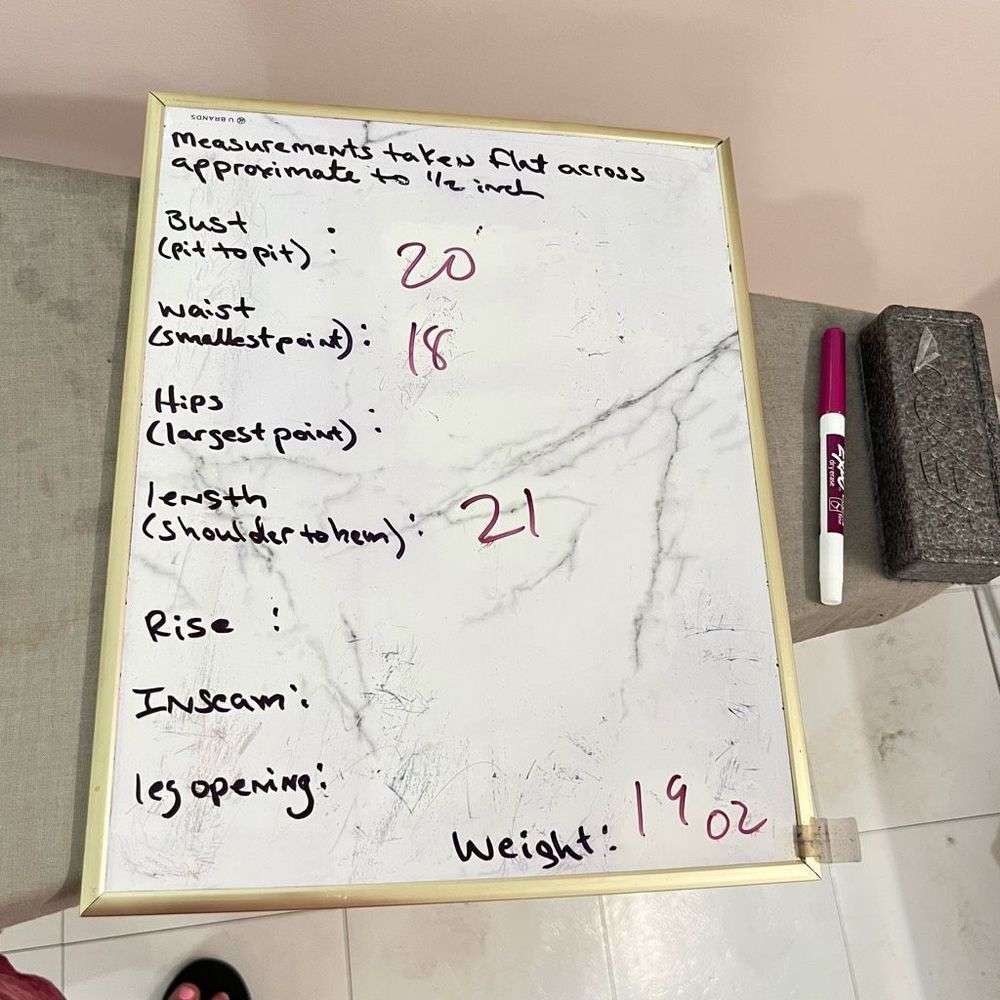 U BRANDS
Measurements taken flat across
approximate to 1/2 inch
Bust
(pit to pit) : 20
waist
(smallest point) : 18
Hips
(largest point) :
length
(shoulder to hem) : 21
Rise :
Inseam :
leg opening :
Weight : 19 oz
EXPO
dry erase